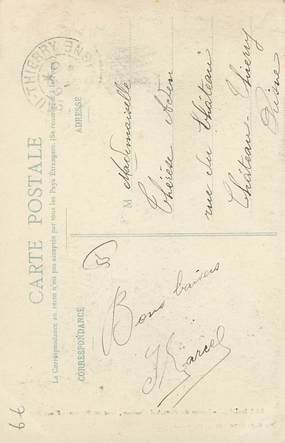 CARTE POSTALE
La Correspondance au recto n'est pas acceptée par tous les Pays Étrangers. (Se renseigner à la Poste)
CORRESPONDANCE
ADRESSE
Bons baisers
Marcel
55
M Mademoiselle
Thérèse
rue du Château
Château Thierry
Aisne
THIERRY